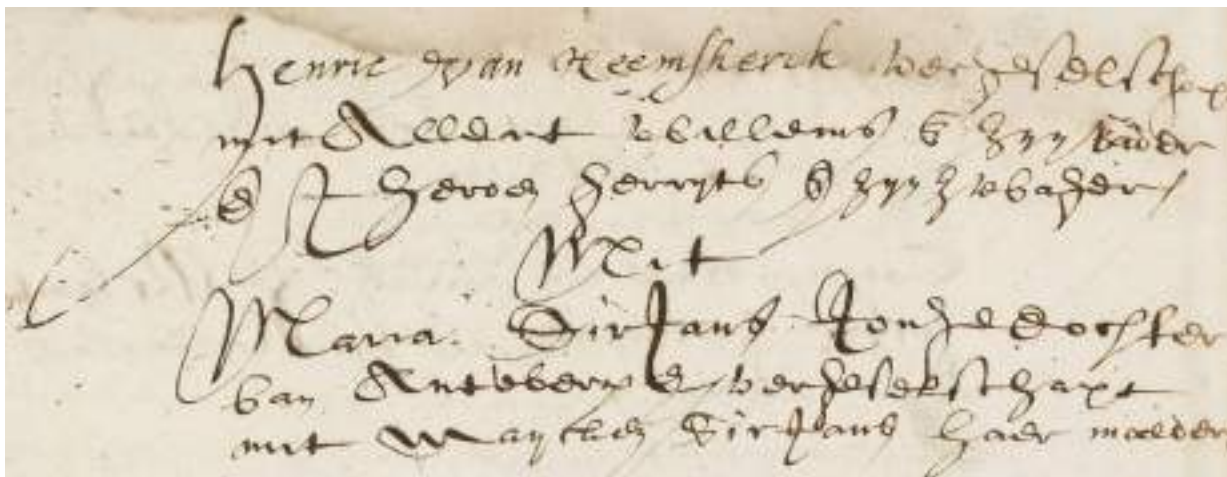 Henric van Heemskerck vergeselschap
mit Allert Willems S zyn vader
en Jheroen Gerryts S zyn zwager
Mit
Maria SirJans Jonge dochter
van Antwerpen vergeselschapt
mit Maycken SirJans haer moeder